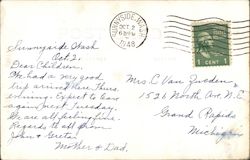 SUNNYSIDE, WASH.
OCT 2
1948
1 CENT 1
Sunnyside Wash
Oct 2,
Dear Children,
We had a very good
trip arrived here Thurs.
evening. Expect to leave
again next Tuesday.
We are all feeling fine.
Regards to all from
John & Greta
Mother & Dad.
Mrs C Van Zweden
1526 North Ave N.E.
Grand Rapids
Michigan